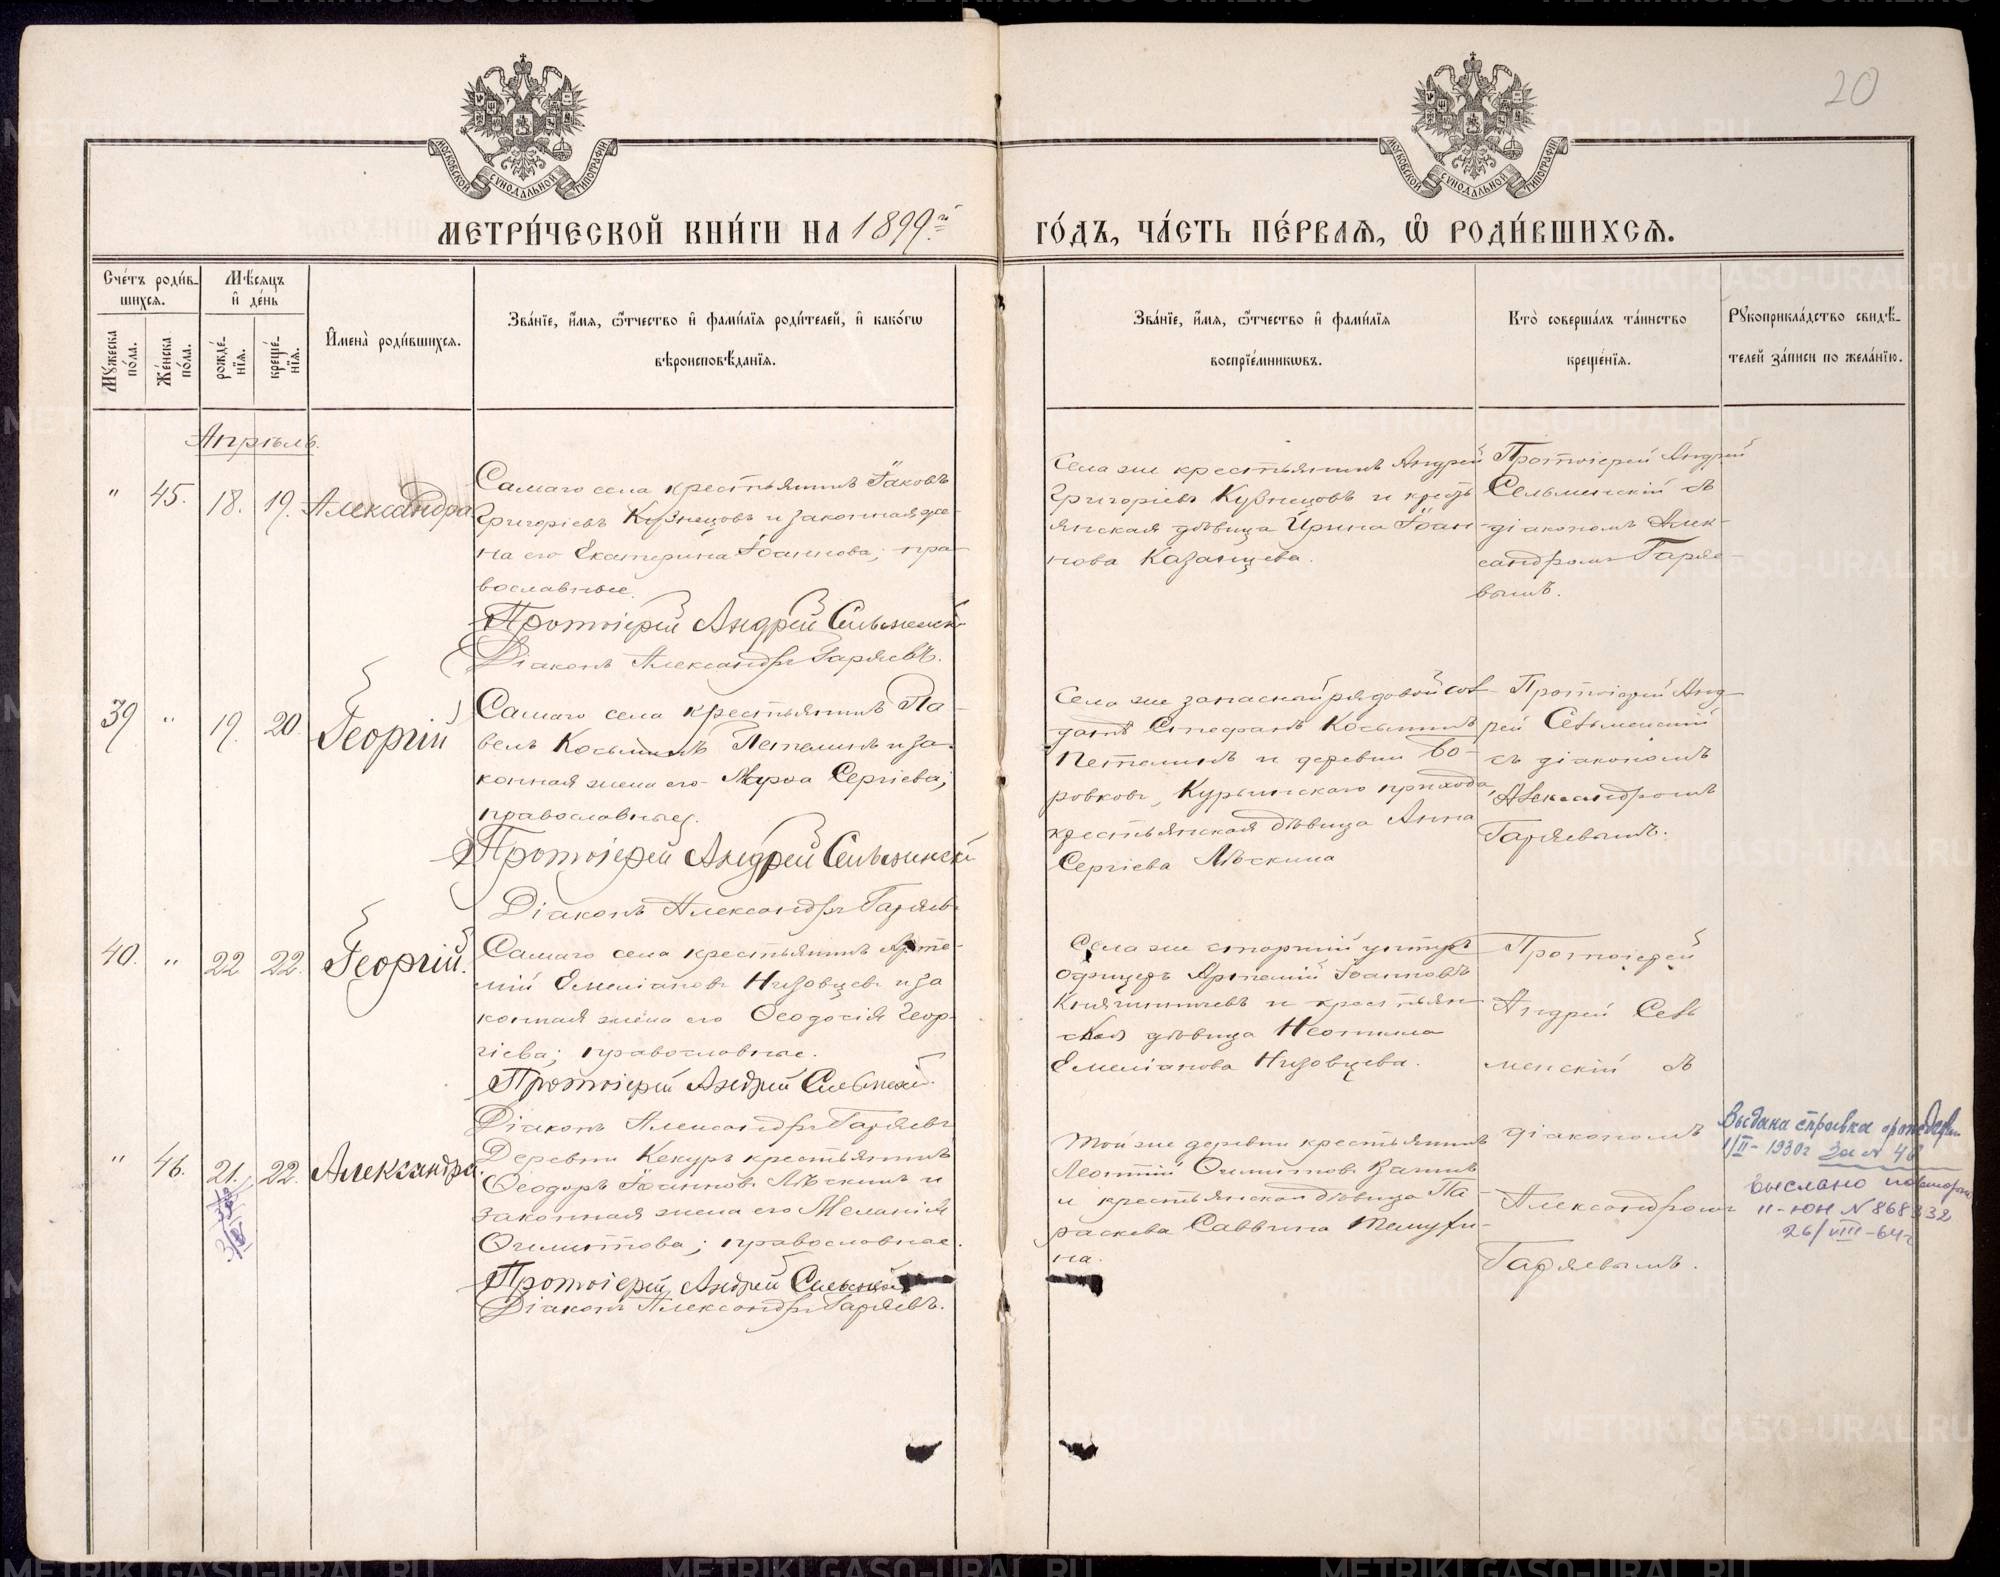 20
МОСКОВСКОЙ СУНОДАЛЬНОЙ ТИПОГРАФІИ
МОСКОВСКОЙ СУНОДАЛЬНОЙ ТИПОГРАФІИ
МЕТРИ́ЧЕСКОЙ КНИ́ГИ НА 1899й ГО́ДЪ, ЧА́СТЬ ПЕ́РВАѦ, Ѡ҆ РОДИ́ВШИХСѦ.
Сче́тъ роди́в-
шихсѧ.
Мѣ́сѧцъ
и҆ де́нь
Мꙋжеска по́ла.
Же́нска по́ла.
рожде́-
нїѧ.
креще́-
нїѧ.
И҆мена̀ роди́вшихсѧ.
Зва́нїе, и҆́мѧ, ѻ҆́тчество и҆ фами́лїѧ роди́телей, и҆ како́гѡ
вѣроисповѣ́данїѧ.
Зва́нїе, и҆́мѧ, ѻ҆́тчество и҆ фами́лїѧ
воспрїе́мникѡвъ.
Кто̀ соверша́лъ та́инство
креще́нїѧ.
Рꙋкоприкла́дство свидѣ́-
телей за́писи по жела́нїю.
Апрѣль.
" 45. 18. 19. Александра
Самаго села крестьянинъ Іаковъ
Григоріевъ Кузнецовъ и законная же-
на его Екатерина Іоаннова; пра-
вославные.
Протоіерей Андрей Сельменскі
Діаконъ Александръ Гаряевъ.
Села же крестьянинъ Андрей
Григоріевъ Кузнецовъ и кресть
янская дѣвица Ирина Іоан-
нова Казанцева.
Протоіерей Андрей
Сельменскій съ
діакономъ Алек-
сандромъ Гаряе-
вымъ.
39 " 19. 20. Георгій
Самаго села крестьянинъ Па-
велъ Косьминъ Петелинъ и за-
конная жена его Марѳа Сергіева;
православные.
Протоіерей Андрей Сельменскій
Діаконъ Александръ Гаряевъ
Села же запасный рядовой сол-
датъ Стефанъ Косьминъ
Петелинъ и деревни Бо-
ровковъ, Курьинскаго прихода,
крестьянская дѣвица Анна
Сергіева Лѣскина
Протоіерей Анд-
рей Сельменскій
съ діакономъ
Александромъ
Гаряевымъ.
40. " 22 22. Георгій.
Самаго села крестьянинъ Арте-
мій Емеліановъ Низовцевъ и за
конная жена его Ѳеодосія Геор-
гіева; православные.
Протоіерей Андрей Сельменскій
Діаконъ Александръ Гаряевъ
Села же старшій унтеръ
офицеръ Артемій Іоанновъ
Княгиничевъ и крестьян
ская дѣвица Неонила
Емеліанова Низовцева.
Протоіерей
Андрей Сель
менскій съ
діакономъ
Александромъ
Гаряевымъ.
" 46. 21. 22. Александра.
Деревни Кекуръ крестьянинъ
Ѳеодоръ Іоанновъ Лѣскинъ и
законная жена его Меланія
Филиппова; православные.
Протоіерей Андрей Сельменскій
Діаконъ Александръ Гаряевъ.
Той же деревни крестьянинъ
Леонтій Филипповъ
и крестьянская дѣвица Па-
раскева Саввина
на.
Выдана справка
1/II - 1930г За № 46
Выслано повторно
II-ЮН №868332
26/VIII-64г
METRIKI.GASO-URAL.RU